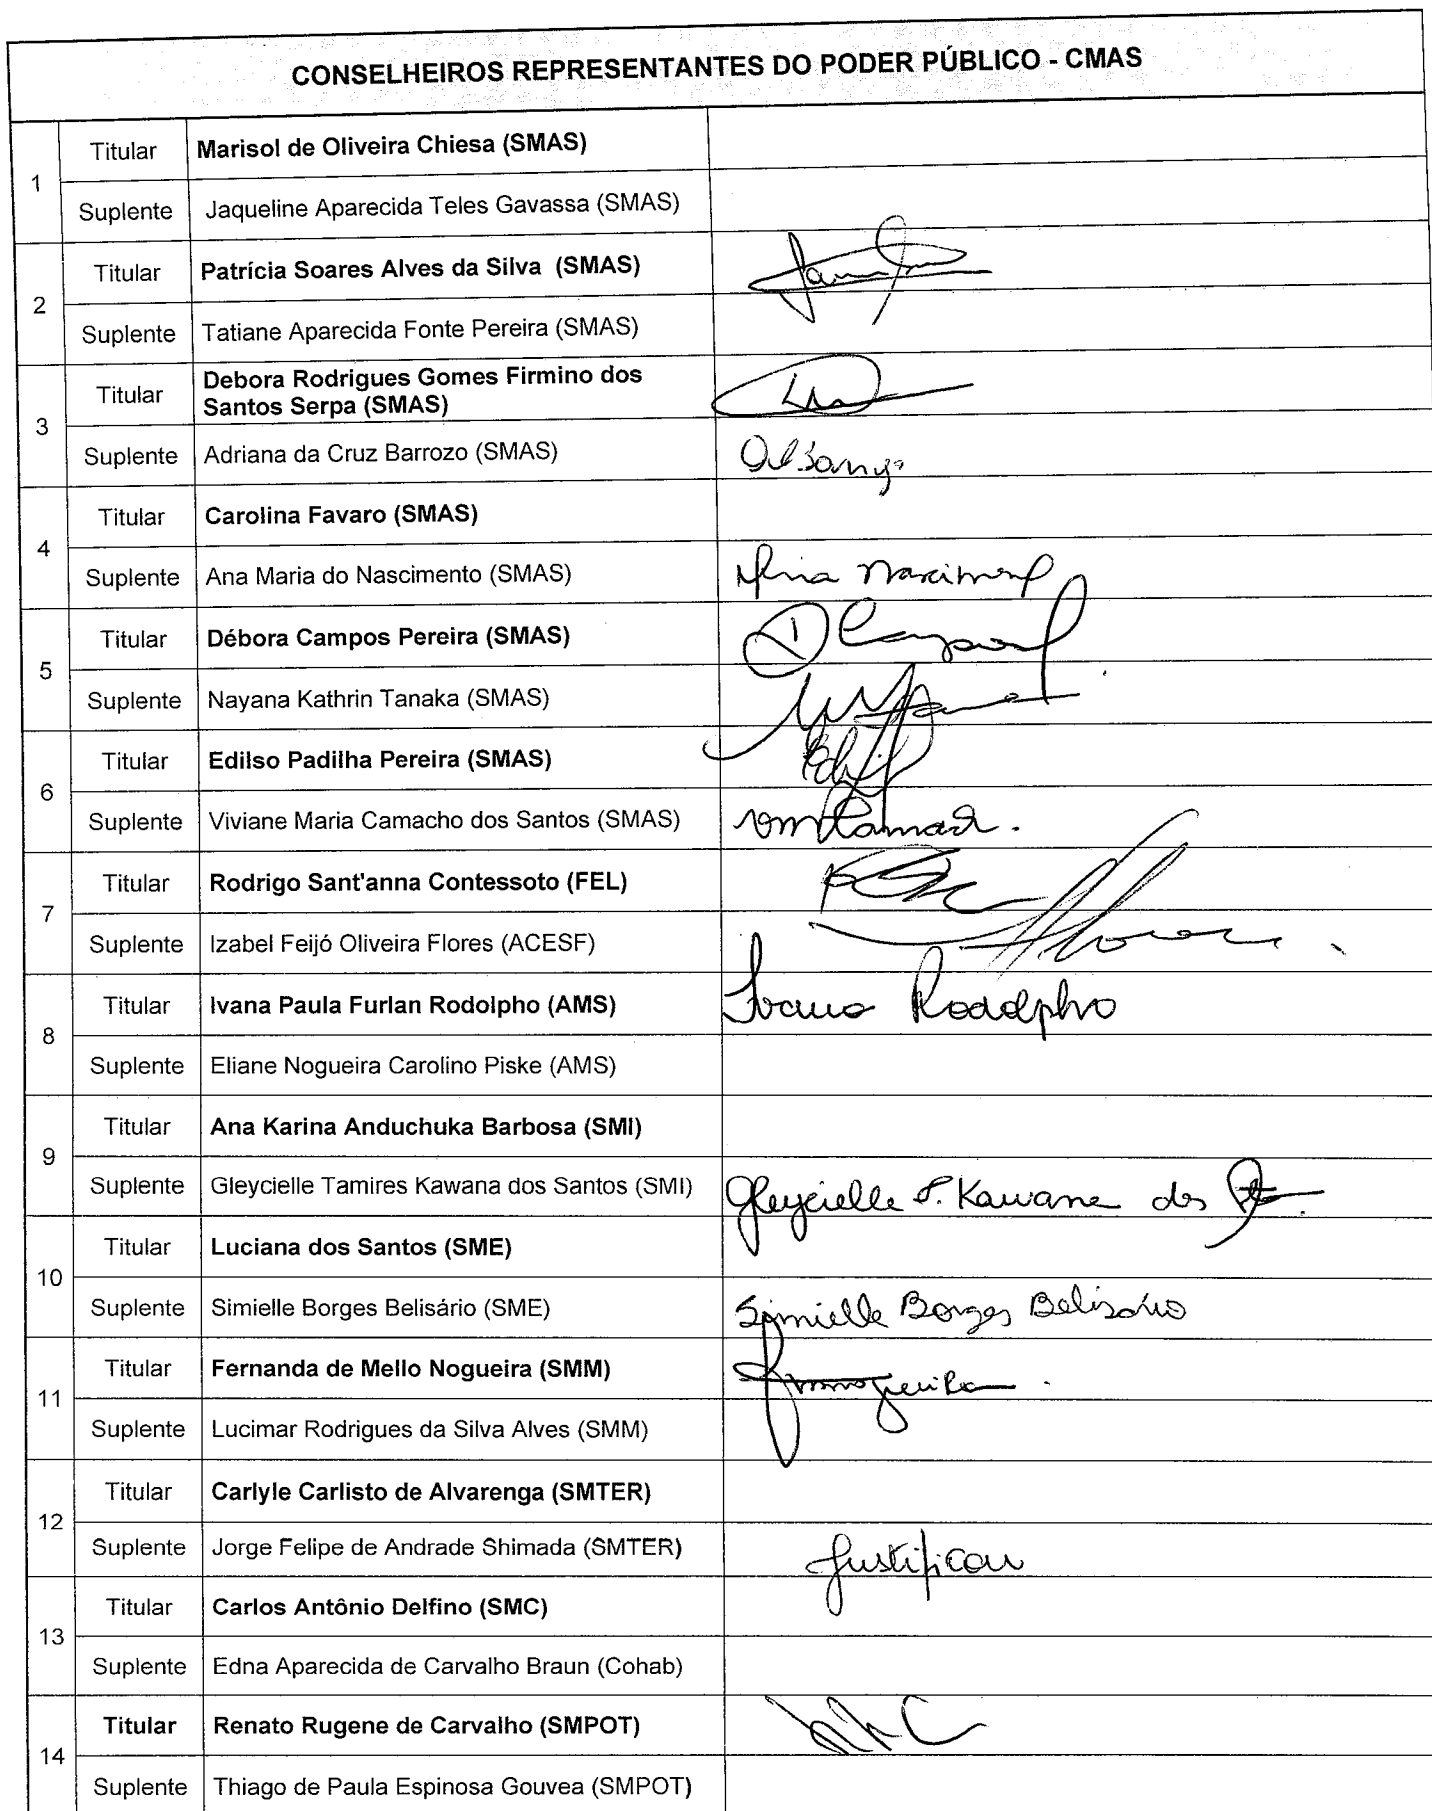 CONSELHEIROS REPRESENTANTES DO PODER PÚBLICO - CMAS
1
Titular Marisol de Oliveira Chiesa (SMAS)
Suplente Jaqueline Aparecida Teles Gavassa (SMAS)
2
Titular Patrícia Soares Alves da Silva (SMAS)
Suplente Tatiane Aparecida Fonte Pereira (SMAS)
3
Titular Debora Rodrigues Gomes Firmino dos
Santos Serpa (SMAS)
Suplente Adriana da Cruz Barrozo (SMAS)
4
Titular Carolina Favaro (SMAS)
Suplente Ana Maria do Nascimento (SMAS)
5
Titular Débora Campos Pereira (SMAS)
Suplente Nayana Kathrin Tanaka (SMAS)
6
Titular Edilso Padilha Pereira (SMAS)
Suplente Viviane Maria Camacho dos Santos (SMAS)
7
Titular Rodrigo Sant'anna Contessoto (FEL)
Suplente Izabel Feijó Oliveira Flores (ACESF)
8
Titular Ivana Paula Furlan Rodolpho (AMS) Ivana Rodolpho
Suplente Eliane Nogueira Carolino Piske (AMS)
9
Titular Ana Karina Anduchuka Barbosa (SMI)
Suplente Gleycielle Tamires Kawana dos Santos (SMI) Gleycielle T. Kawana dos
10
Titular Luciana dos Santos (SME)
Suplente Simielle Borges Belisário (SME) Simielle Borges Belisário
11
Titular Fernanda de Mello Nogueira (SMM)
Suplente Lucimar Rodrigues da Silva Alves (SMM)
12
Titular Carlyle Carlisto de Alvarenga (SMTER)
Suplente Jorge Felipe de Andrade Shimada (SMTER) Justificou
13
Titular Carlos Antônio Delfino (SMC)
Suplente Edna Aparecida de Carvalho Braun (Cohab)
14
Titular Renato Rugene de Carvalho (SMPOT)
Suplente Thiago de Paula Espinosa Gouvea (SMPOT)